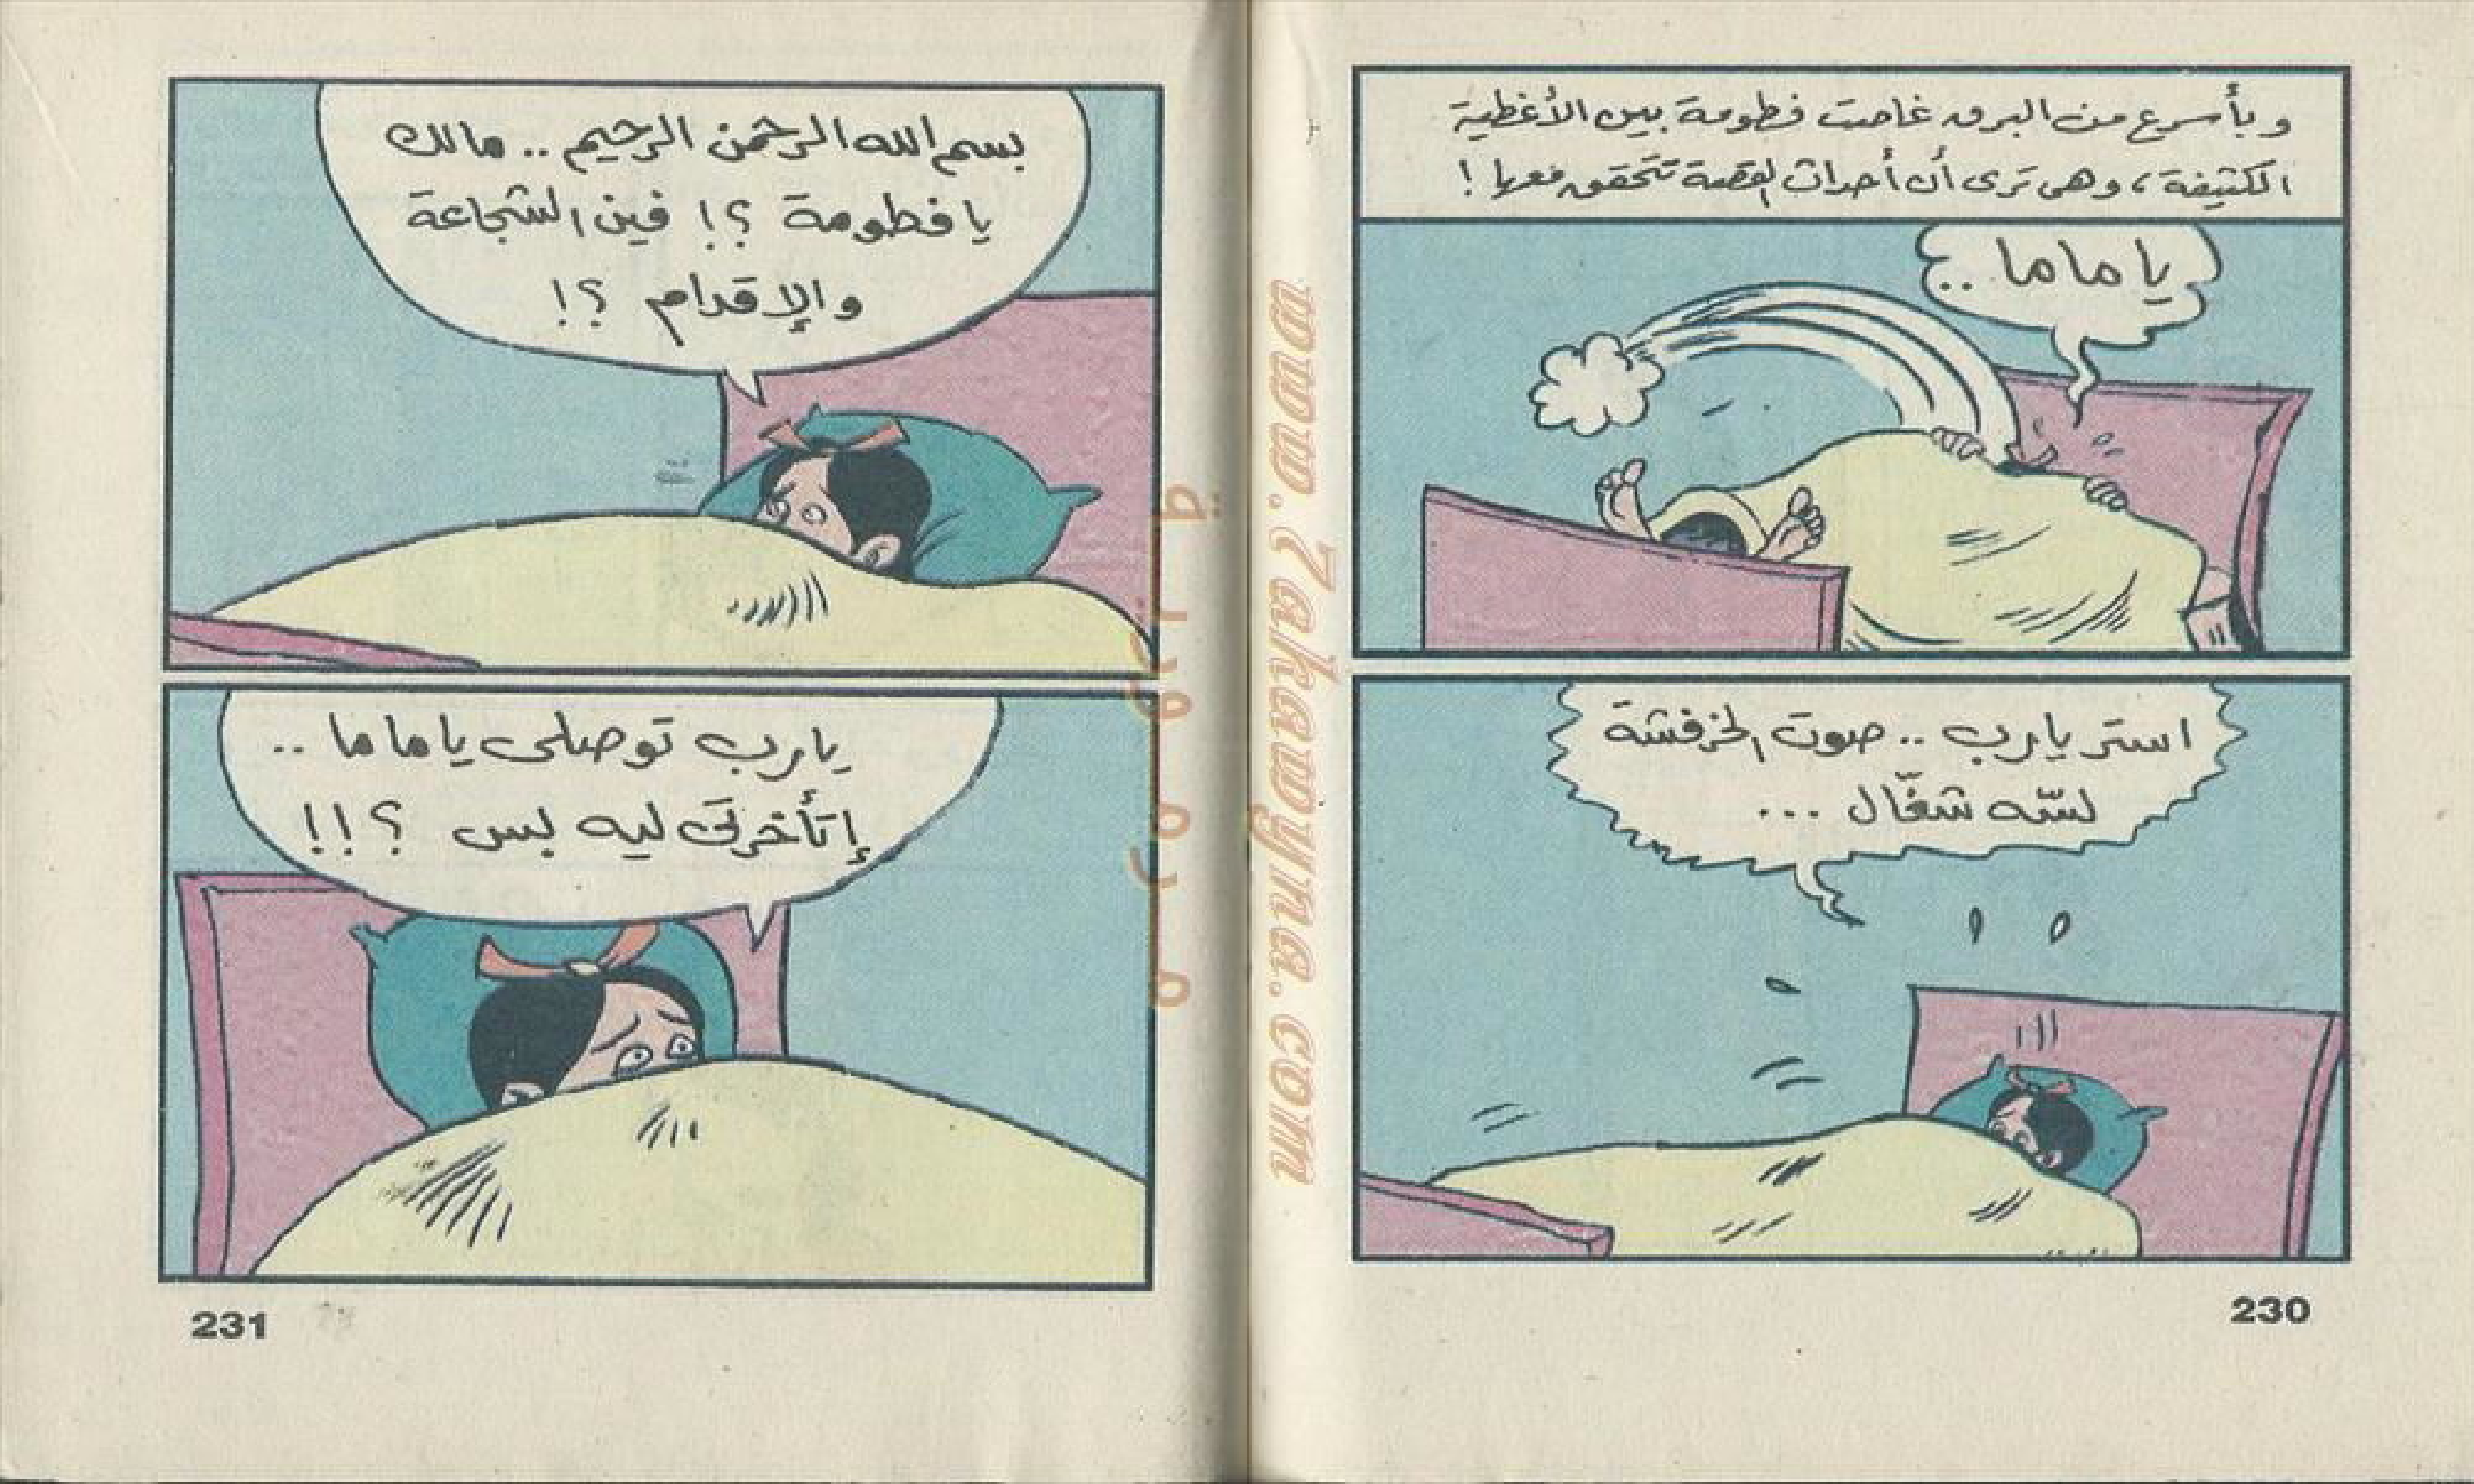 وبأسرع من البرق غاصت فطومة بين الأغطية
الكثيفة، وهى ترى أن أحداث القصة تتحقق معها !
يا ماما ..
استر يارب .. صوت الخرفشة
لسّه شغّال ...
230
بسم الله الرحمن الرحيم .. مالك
يا فطومة ؟! فين الشجاعة
والإقدام ؟!
يارب توصلى يا ماما ..
إتأخرتى ليه بس ؟!!
231
www.7akawyna.com